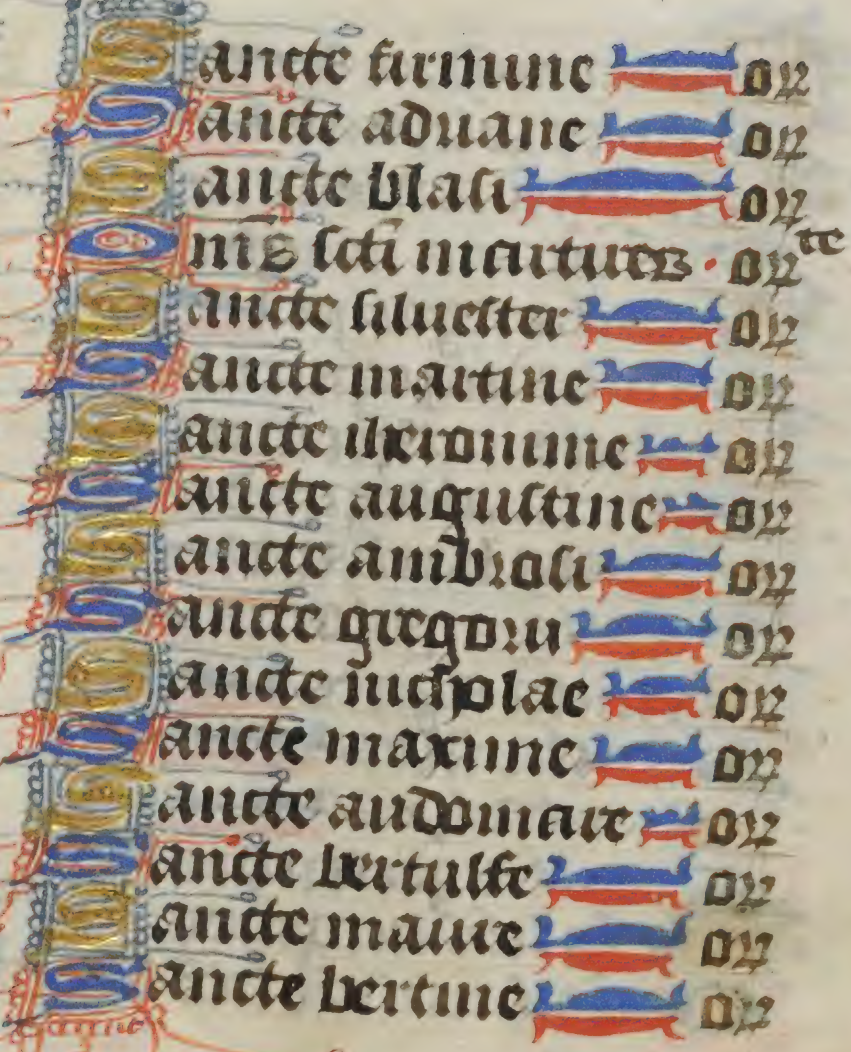 Sancte firmine or
Sancte adriane or
Sancte blasi or
Omēs sc̄ti martires · or te
Sancte siluester or
Sancte martine or
Sancte iheronime or
Sancte augustine or
Sancte ambrosi or
Sancte gregori or
Sancte nicholae or
Sancte maxime or
Sancte audomare or
Sancte bertulfe or
Sancte maure or
Sancte bertine or